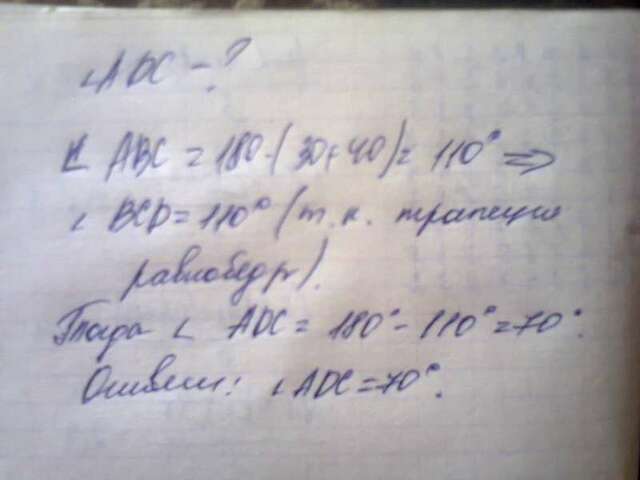 ∠ADC - ?
∠ ABC = 180-(30+40)= 110° =>
∠ BCD = 110° (т.к. трапеция
равнобедр).
Тогда ∠ ADC = 180° - 110° = 70°.
Ответ: ∠ADC = 70°.